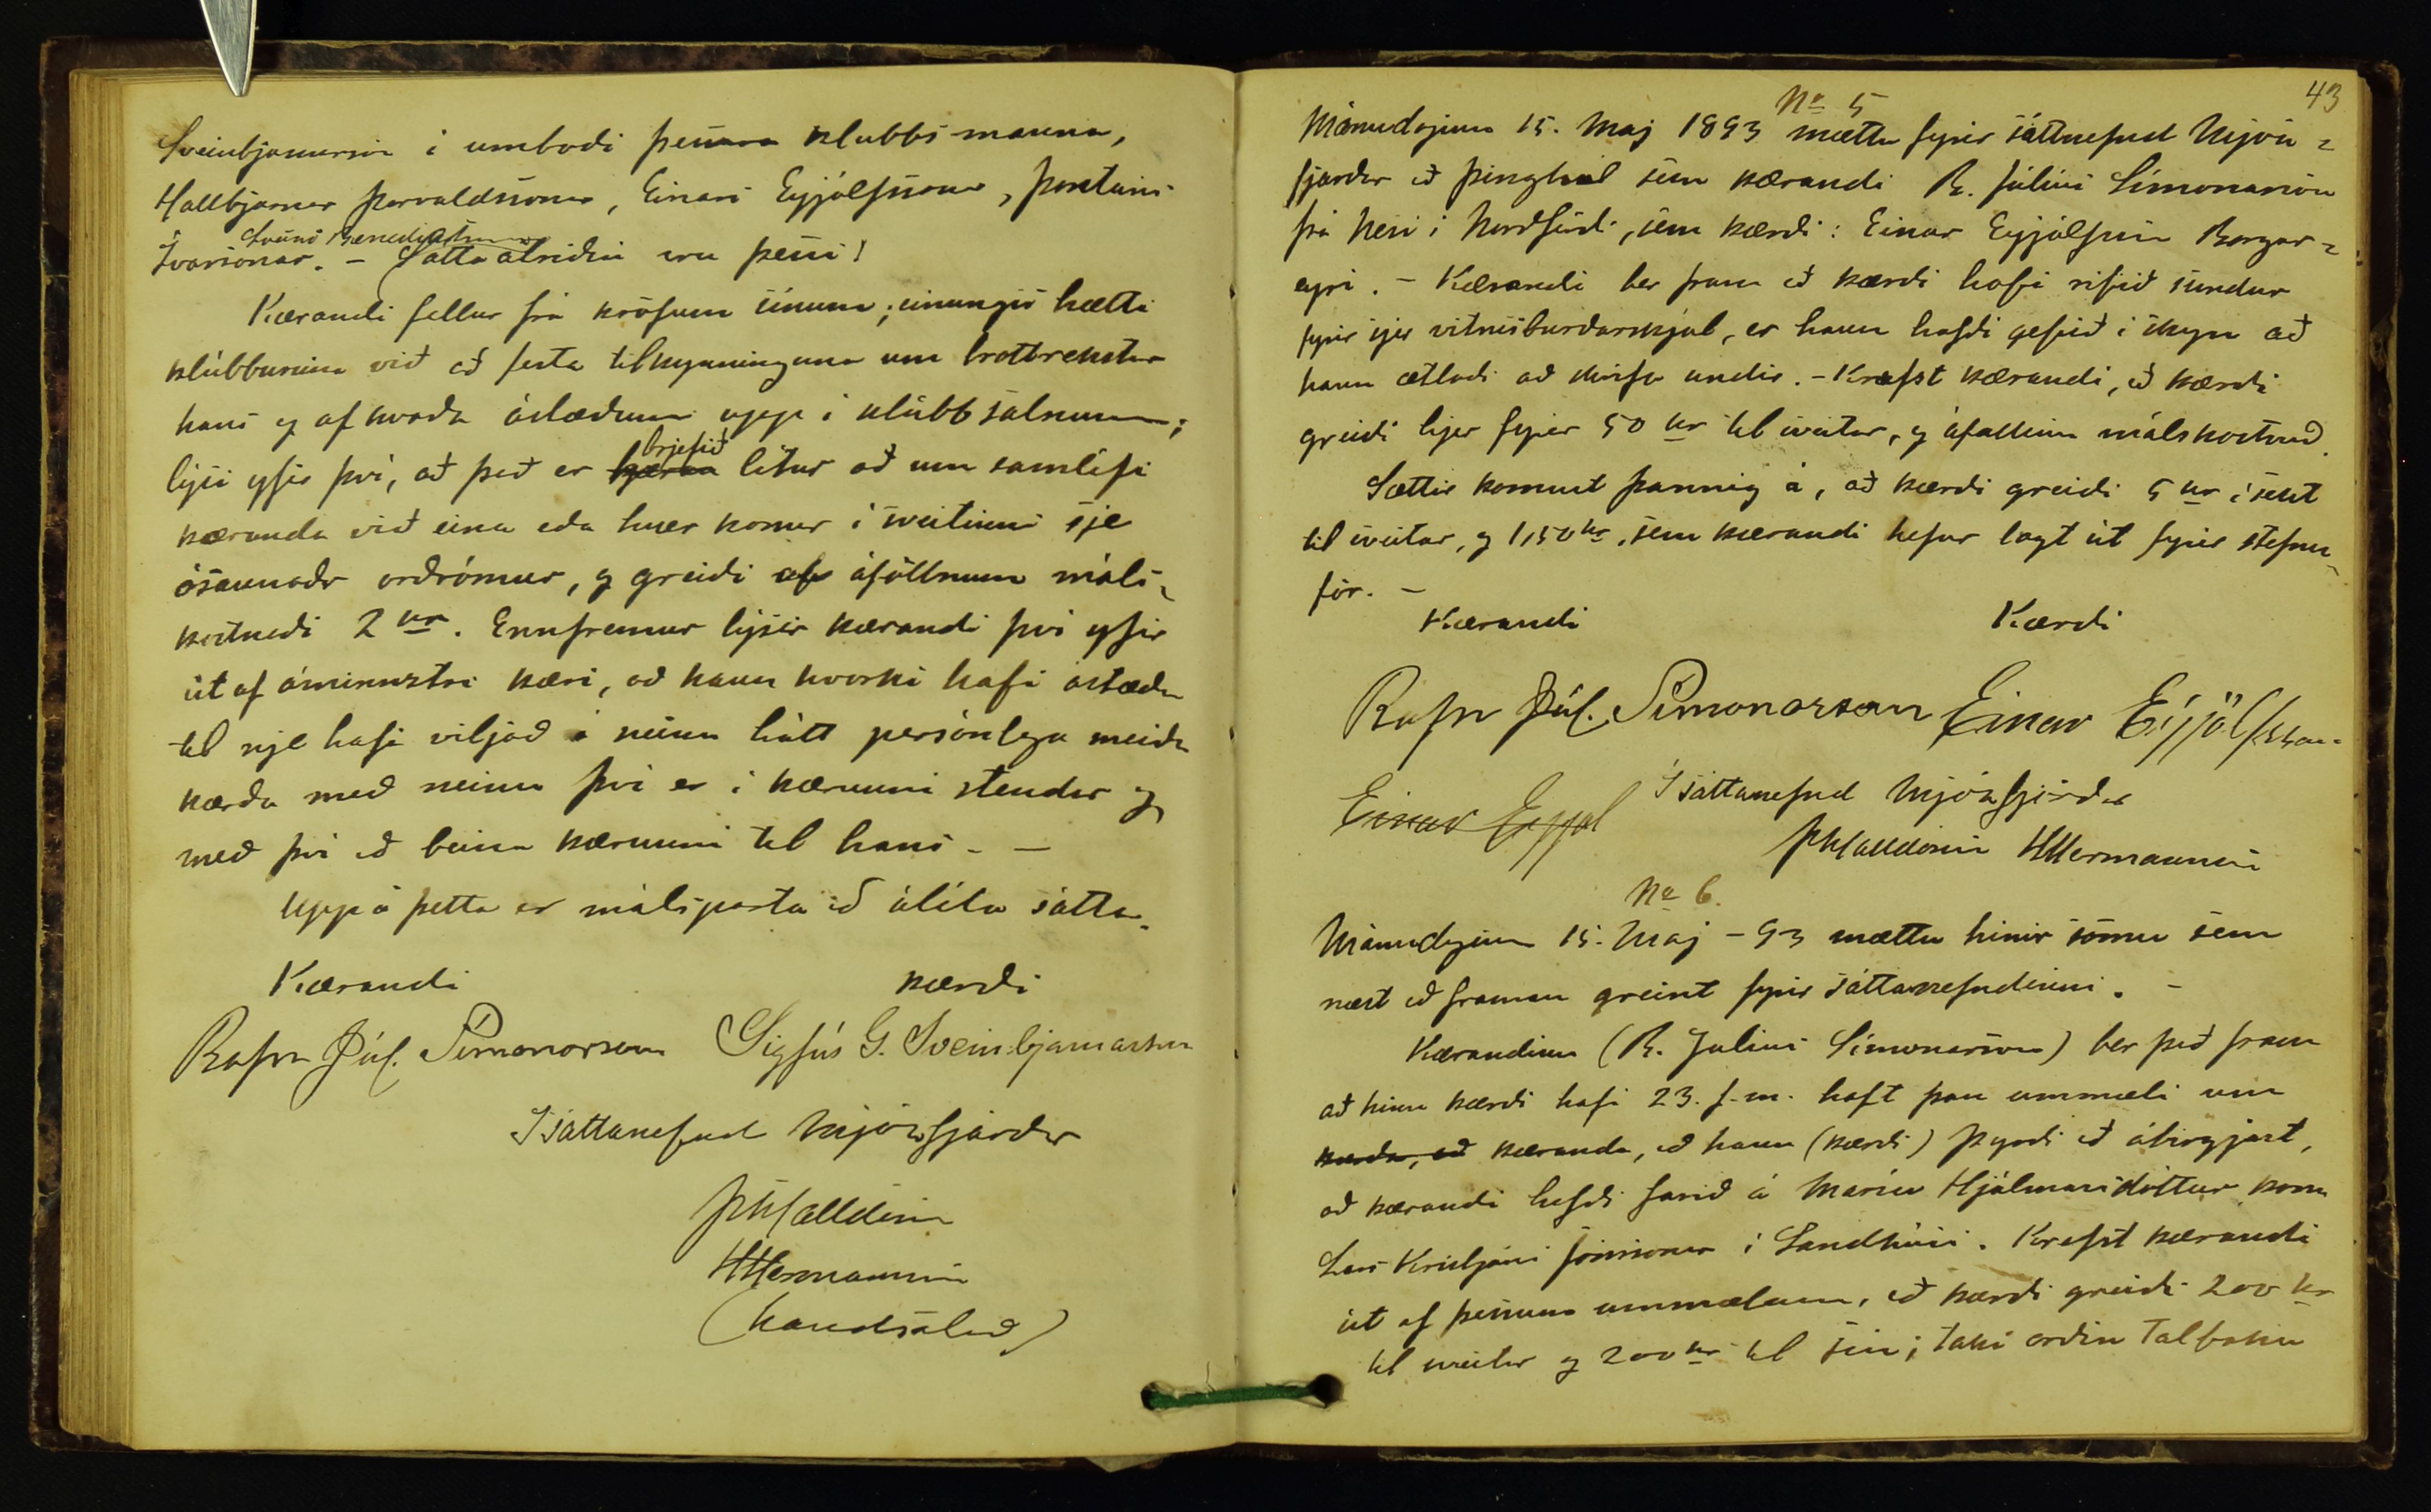 Sveinbjarnarson í umboði þessara klubbs manna,
Hallbjarnar Þorvaldssonar, Einars Eyjólfssonar, Þorsteins
Sveins Benediktssonar
Ívarssonar. - Sátta atriðin eru þessi!
Kærandi fellur frá kröfum sínum; einungis hætti
klúbburinn við að festa tilkynninguna um brottrekstur
hans og af hvaða ástæðum upp í klúbbsalnum;
brjefið
lýsi yfir því, að það er kæran lítur að um samlífi
kæranda við eina eða hver konur í sveitinni sje
ósannaðr orðrómur, og greiði af áföllnum máls-
kostnaði 2 kr. Ennfremur lýsir kærandi því yfir
út af áminnstri kæri, að hann hvorki hafi ástæðu
til nje hafi viljað á neinn hátt persónlega meiða
kærða með neinu því er í kærunni stendur og
með því að beina kærunni til hans. -
Uppá þetta er málsparta að álíta sátta.
Kærandi kærði
Rafn Júl. Símonarson Sigfús G. Sveinbjarnarson
Í sáttanefnd Mjóafjarðar
HHermannsson
(handsalað)
43
No 5
Mánudaginn 15. Maj 1893 mættu fyrir sáttnefnd Mjóa=
fjarðar að þinghal sem kærandi R. Júlíus Símonarson
frá Nesi í Norðfirði, sem kærði: Einar Eyjólfsson Borgar=
eyri. - Kærandi ber fram að kærði hafi rifið sundur
fyrir sjer vitnisburðarskjal, er hann hafði gefið í skyn að
hann ætlaði að skrifa undir. - Krefst kærandi, að kærði
greiði hjer fyrir 50 kr til sveitar, og áfallinn málskostnað.
Sættir komust þannig á, að kærði greiði 5 kr í sekt
til sveitar, og 1,50 kr, sem kærandi hefur lagt út fyrir stefnu-
för. -
Kærandi Kærði
Rafn Júl. Símonarson Einar Eyjólfsson
Einar Eyjol
Í sáttanefnd Mjóafjarðar
HHermannsson
No 6.
Mánudaginn 15. Maj - 93 mættu hinir sömu sem
næst að framan greint fyrir sáttanefndinni. -
Kærandinn (R. Julius Símonarson) ber það fram
að hinn kærði hafi 23. f.m. haft þau ummæli um
kærða, að kæranda, að hann (kærði) þyrði að ábyrgjast,
að kærandi hefði farið á Maríu Hjálmarsdóttur konu
Lars Kristjáns Jónssonar í Sandhúsi. Krefst kærandi
út af þessum ummælum, að kærði greiði 200 kr
til sveitar og 200 kr til sín; taki orðin talbaka